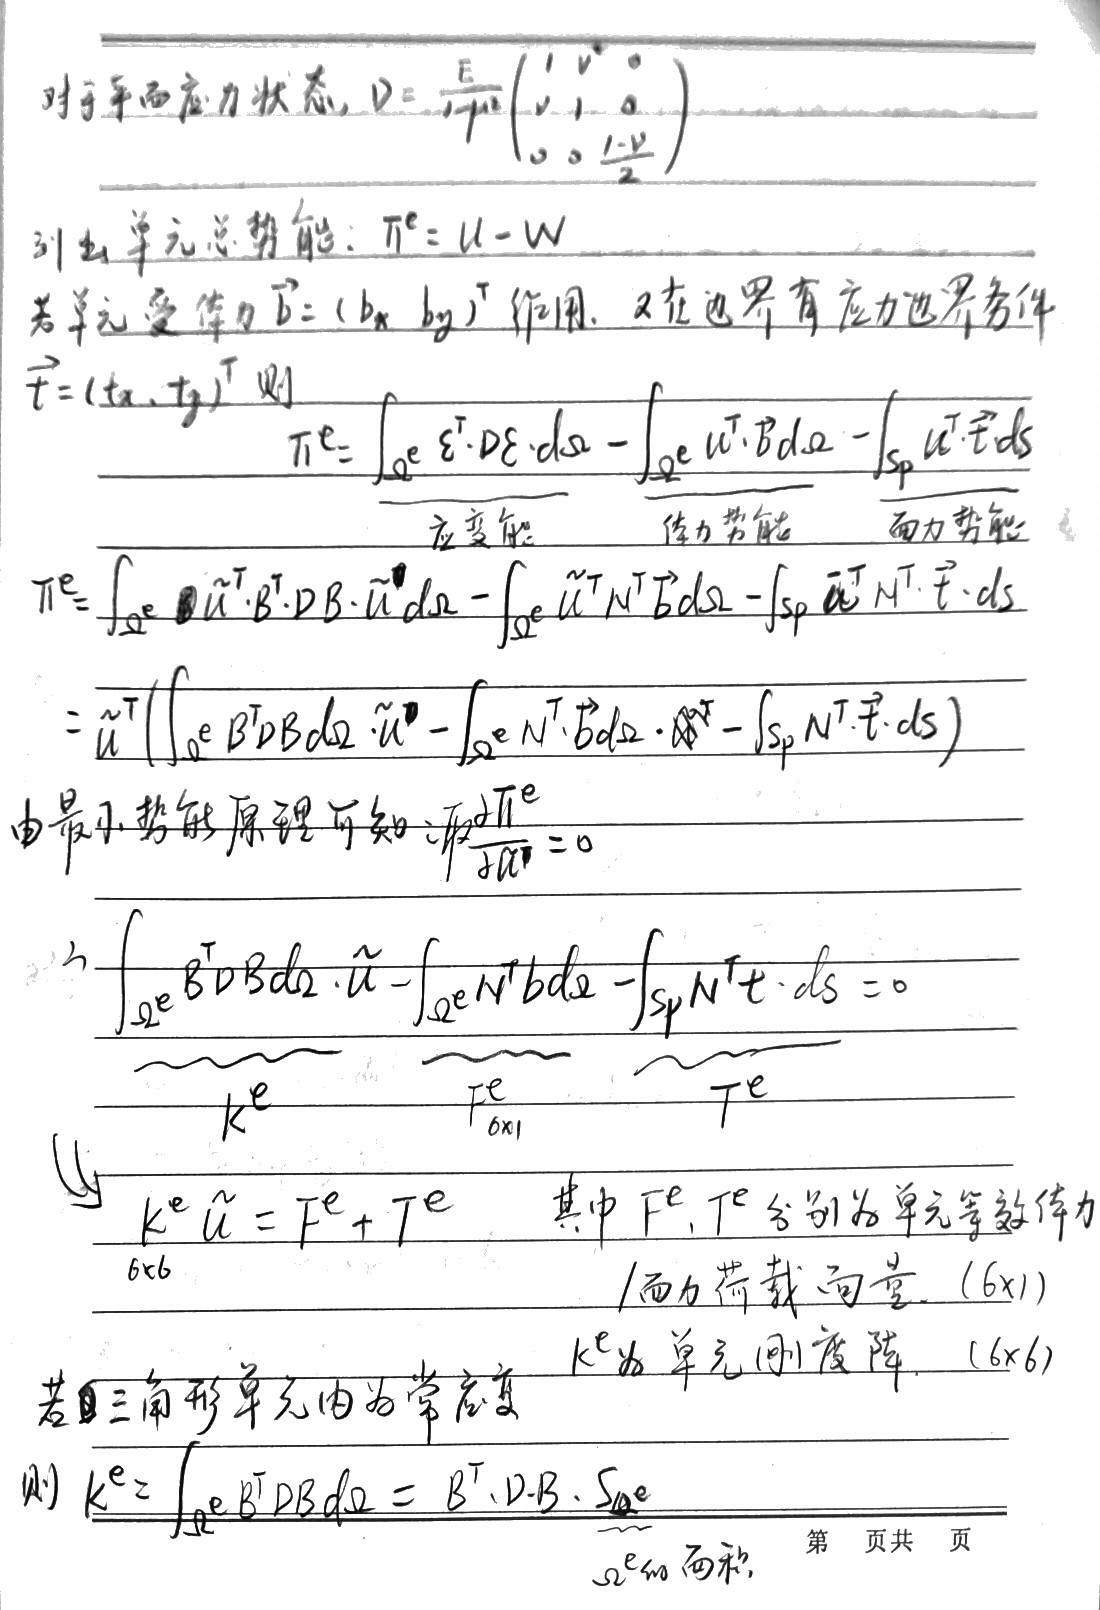 对于平面应力状态, D = E/(1-μ²) (1 ν 0
ν 1 0
0 0 (1-ν)/2)
列出单元总势能: Πᵉ = U - W
若单元受体力 b⃗ = (bx by)ᵀ 作用. 又在边界有应力边界条件
t⃗ = (tx、ty)ᵀ 则
Πᵉ = ∫Ωᵉ εᵀ·Dε·dΩ - ∫Ωᵉ uᵀ·b⃗dΩ - ∫Sp uᵀ·t⃗·ds
应变能 体力势能 面力势能
Πᵉ = ∫Ωᵉ ũᵀ·Bᵀ·DB·ũdΩ - ∫Ωᵉ ũᵀNᵀb⃗dΩ - ∫Sp ũᵀNᵀ·t⃗·ds
= ũᵀ(∫Ωᵉ BᵀDBdΩ·ũ - ∫Ωᵉ Nᵀ·b⃗dΩ - ∫Sp Nᵀ·t⃗·ds)
由最小势能原理可知:取 ∂Πᵉ/∂ũ = 0
∫Ωᵉ BᵀDBdΩ·ũ - ∫Ωᵉ NᵀbdΩ - ∫Sp Nᵀt·ds = 0
Kᵉ Fᵉ 6×1 Tᵉ
Kᵉ ũ = Fᵉ + Tᵉ 其中 Fᵉ、Tᵉ 分别为单元等效体力
6×6
/面力荷载向量. (6×1)
Kᵉ为单元刚度阵. (6×6)
若三角形单元内为常应变
则 Kᵉ = ∫Ωᵉ BᵀDBdΩ = Bᵀ·D·B·SΩᵉ
Ωᵉ的面积.
第 页共 页